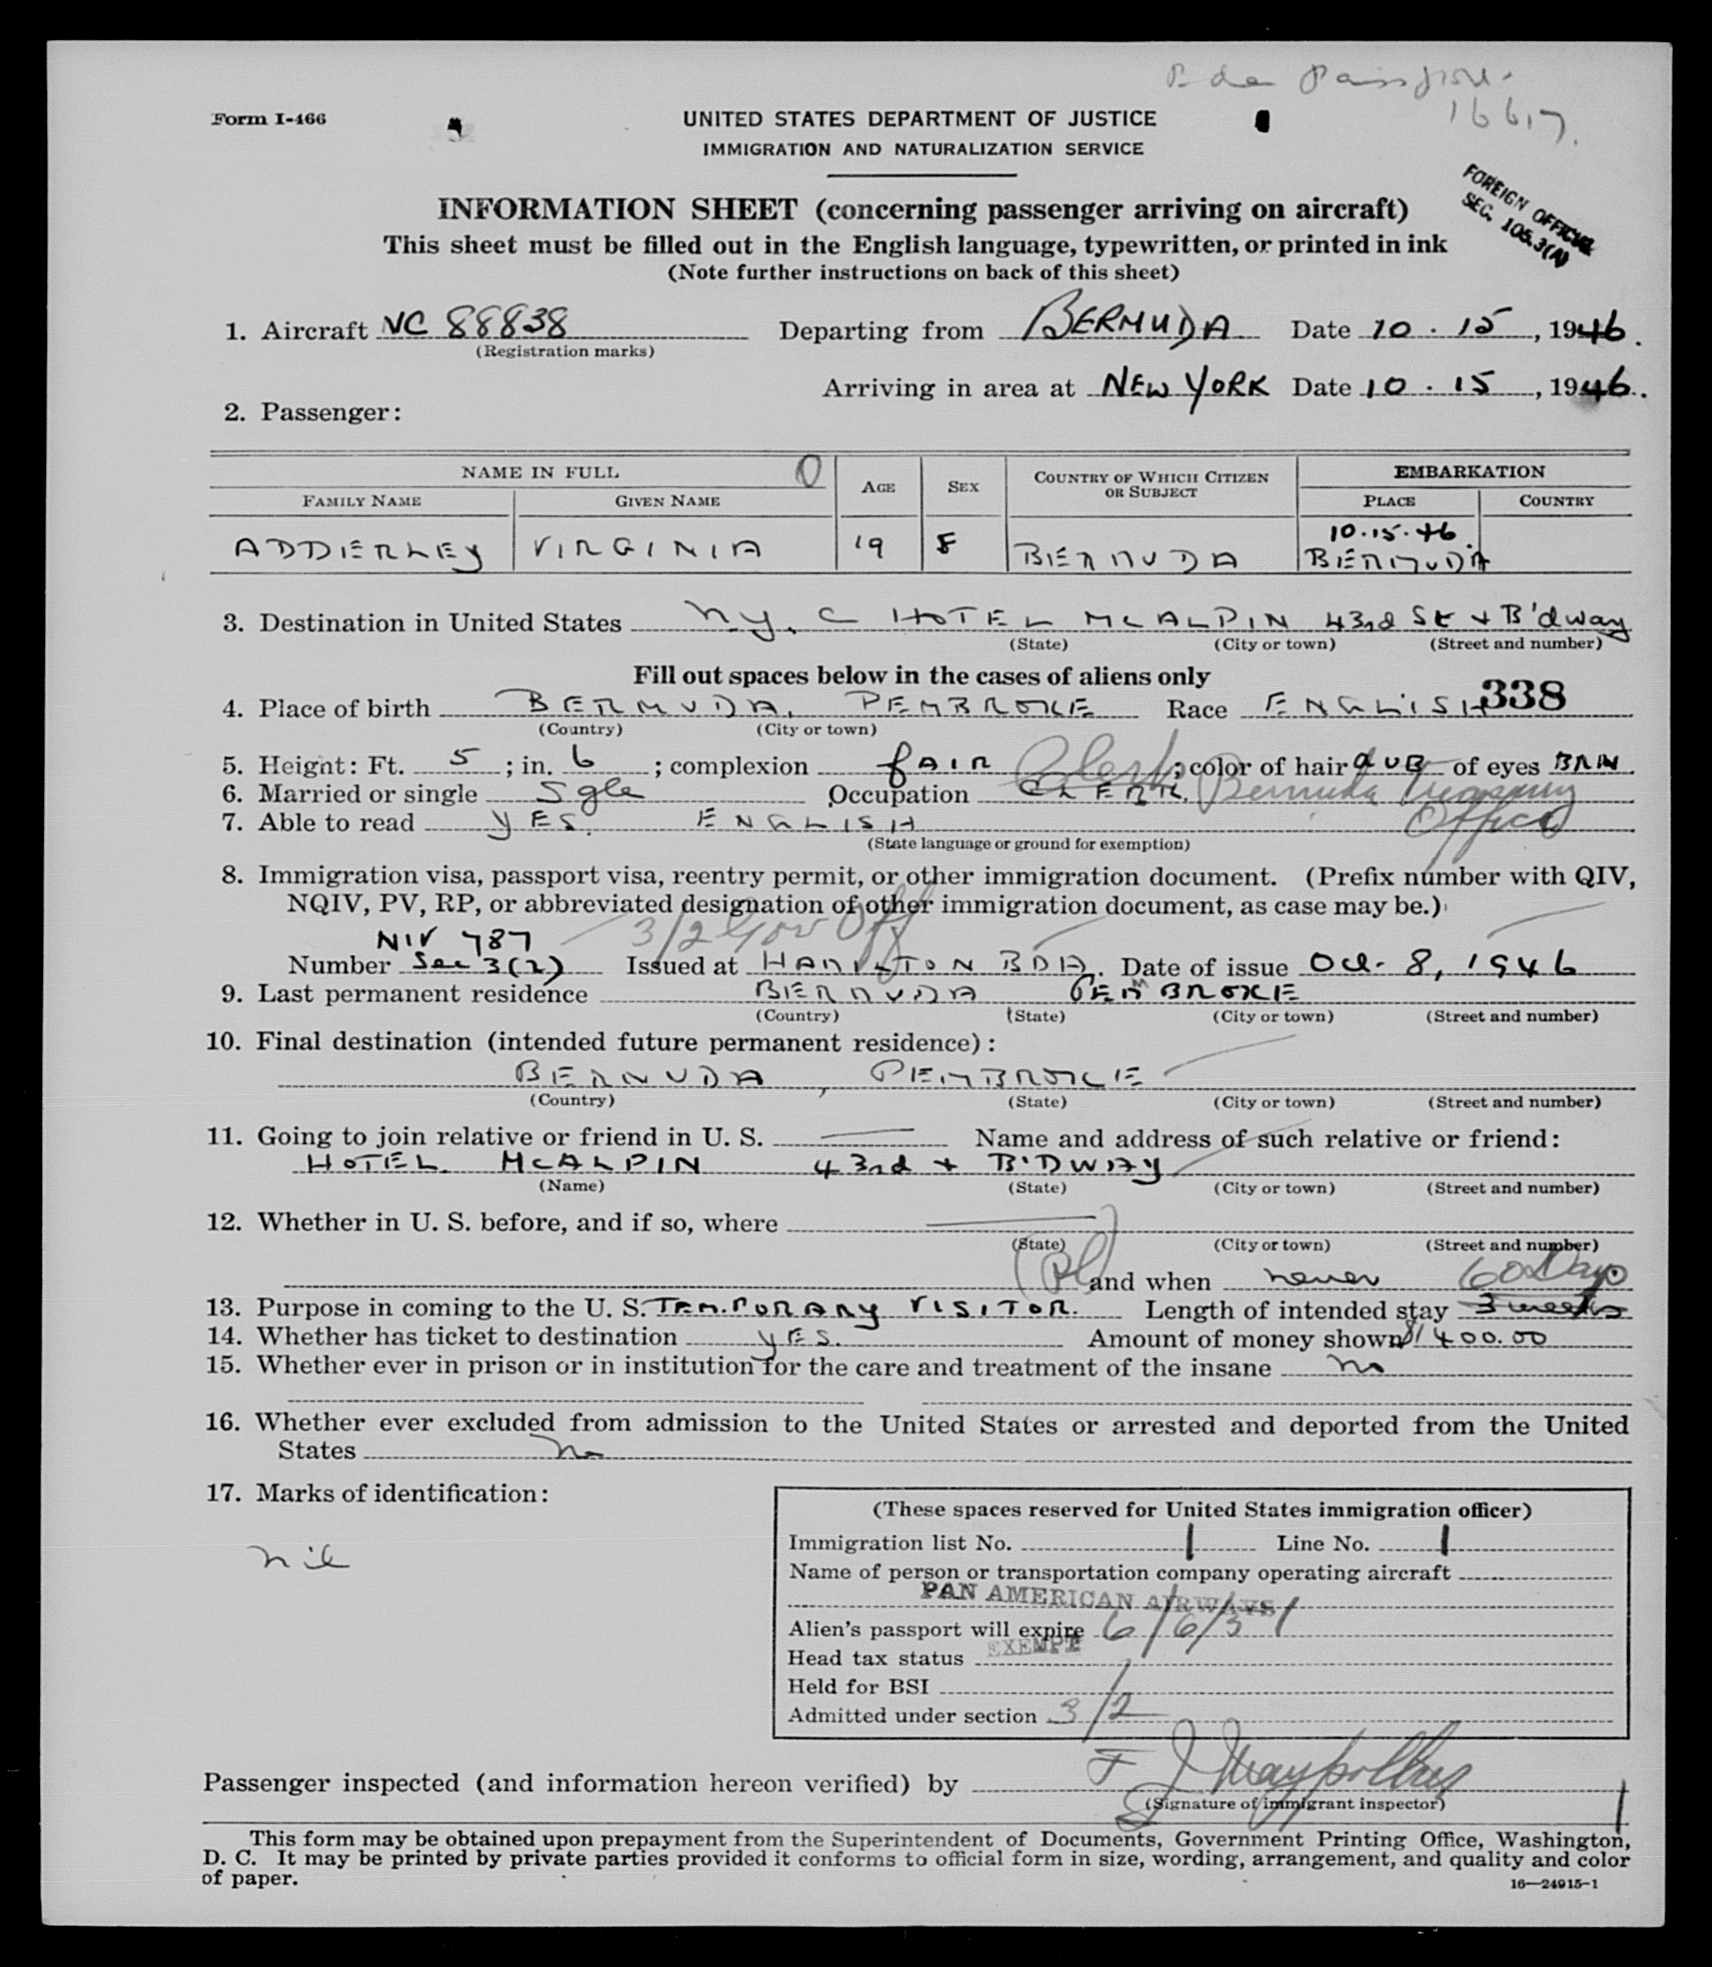 Bda Passport.
16617.
Form I-466
UNITED STATES DEPARTMENT OF JUSTICE
IMMIGRATION AND NATURALIZATION SERVICE
FOREIGN OFFICIAL
SEC. 105.3(A)
INFORMATION SHEET (concerning passenger arriving on aircraft)
This sheet must be filled out in the English language, typewritten, or printed in ink
(Note further instructions on back of this sheet)
1. Aircraft NC 88838 Departing from BERMUDA Date 10.15, 1946.
(Registration marks)
Arriving in area at NEW YORK Date 10.15, 1946.
2. Passenger:
NAME IN FULL AGE SEX COUNTRY OF WHICH CITIZEN OR SUBJECT EMBARKATION
FAMILY NAME GIVEN NAME PLACE COUNTRY
10.15.46
ADDERLEY VIRGINIA 19 F BERMUDA BERMUDA
3. Destination in United States N.Y.C HOTEL MCALPIN 43rd St + B'dway
(State) (City or town) (Street and number)
Fill out spaces below in the cases of aliens only
338
4. Place of birth BERMUDA, PEMBROKE Race ENGLISH
(Country) (City or town)
5. Height: Ft. 5; in. 6; complexion FAIR; color of hair AUB of eyes BRN
6. Married or single Sgle Occupation CLERK. Clerk Bermuda Treasury
7. Able to read YES. ENGLISH Office
(State language or ground for exemption)
8. Immigration visa, passport visa, reentry permit, or other immigration document. (Prefix number with QIV,
NQIV, PV, RP, or abbreviated designation of other immigration document, as case may be.)
NIV 787 3/2 Gov Off
Number Sec 3(2) Issued at HAMILTON BDA. Date of issue Oct. 8, 1946
9. Last permanent residence BERMUDA PEMBROKE
(Country) (State) (City or town) (Street and number)
10. Final destination (intended future permanent residence):
BERMUDA, PEMBROKE
(Country) (State) (City or town) (Street and number)
11. Going to join relative or friend in U. S. — Name and address of such relative or friend:
HOTEL MCALPIN 43rd + B'DWAY
(Name) (State) (City or town) (Street and number)
12. Whether in U. S. before, and if so, where —
(State) (City or town) (Street and number)
and when never 60 Days
13. Purpose in coming to the U. S. TEMPORARY VISITOR. Length of intended stay 3 weeks
14. Whether has ticket to destination YES. Amount of money shown $400.00
15. Whether ever in prison or in institution for the care and treatment of the insane no
16. Whether ever excluded from admission to the United States or arrested and deported from the United
States no
17. Marks of identification:
nil
(These spaces reserved for United States immigration officer)
Immigration list No. 1 Line No. 1
Name of person or transportation company operating aircraft
PAN AMERICAN AIRWAYS
Alien's passport will expire 6/6/51
Head tax status EXEMPT
Held for BSI
Admitted under section 3/2
Passenger inspected (and information hereon verified) by
(Signature of immigrant inspector)
This form may be obtained upon prepayment from the Superintendent of Documents, Government Printing Office, Washington,
D. C. It may be printed by private parties provided it conforms to official form in size, wording, arrangement, and quality and color
of paper.
16—24915-1